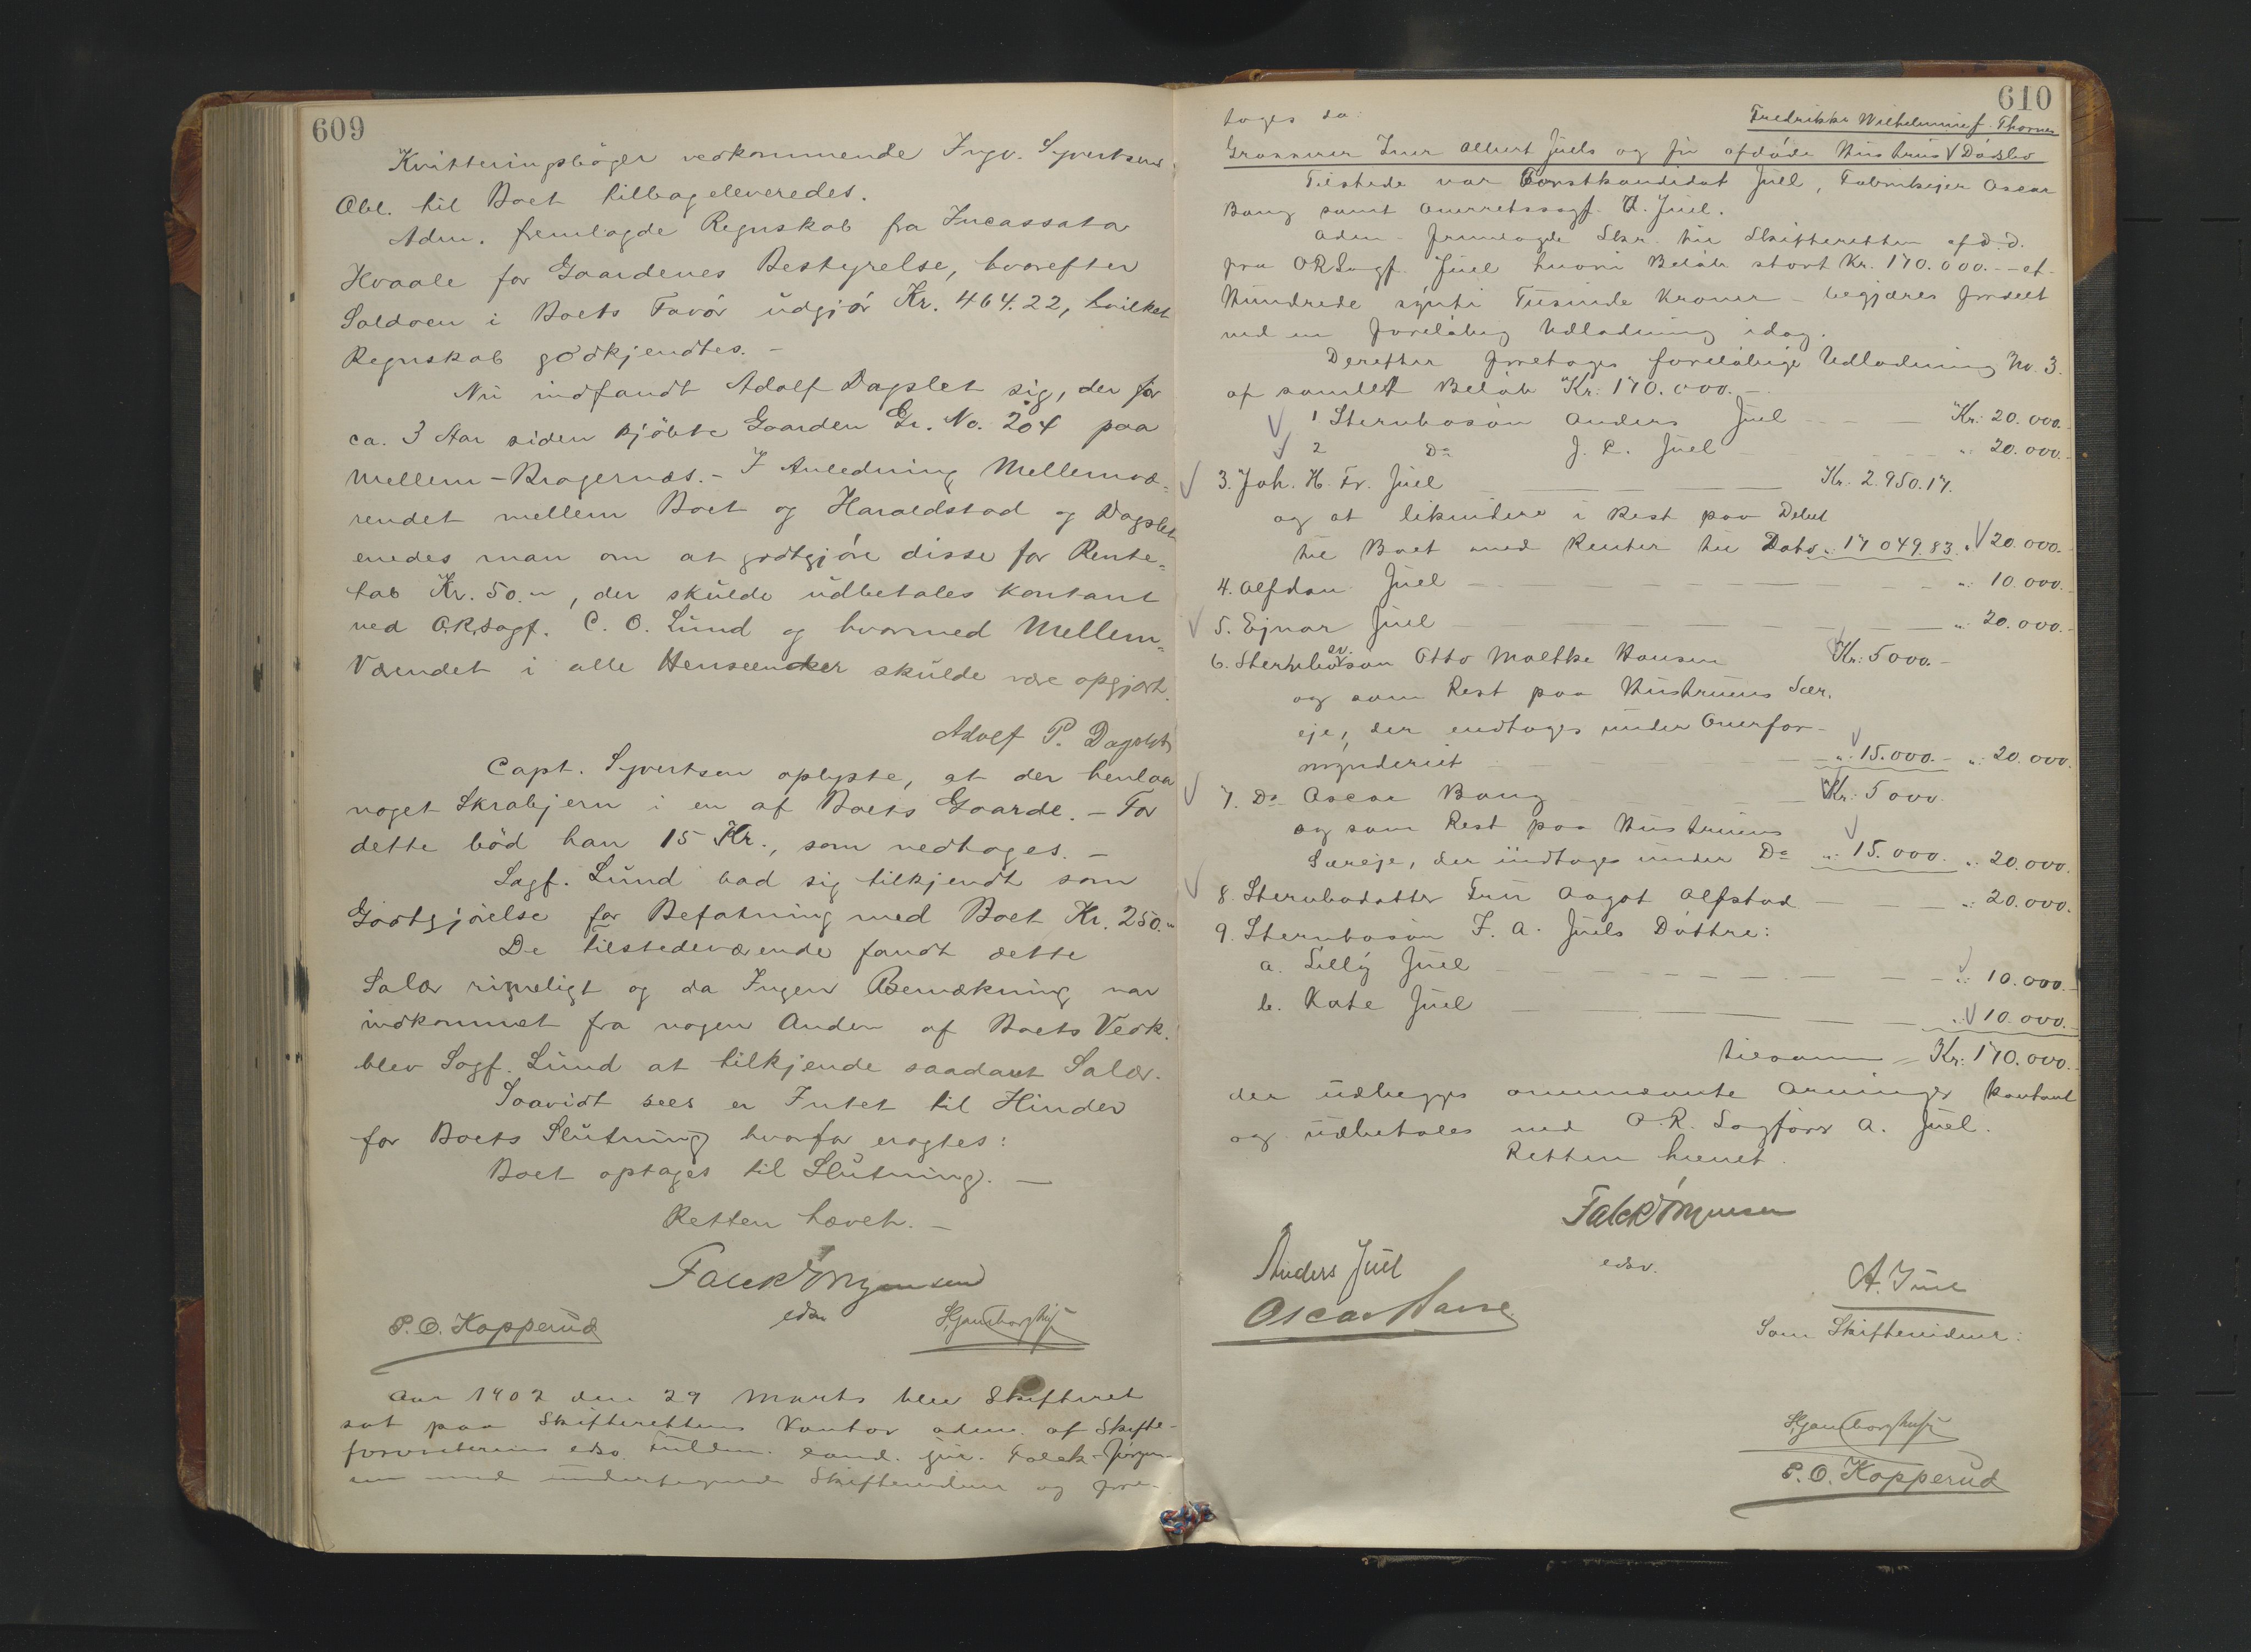 609
Kvitteringsbøger vedkommende Ingv. Syvertsens
Obl. til Boet tilbageleveredes.
Adm. fremlagde Regnskab fra Incassator
Hvaale for Gaardenes Bestyrelse, hvorefter
Saldoen i Boets Favør udgjør Kr. 464.22, hvilket
Regnskab godkjendtes. –
Nu indfandt Adolf Dagslet sig, der for
ca. 3 Aar siden kjøbte Gaarden Gr. No. 204 paa
Mellem-Bragernæs. – I Anledning Mellemvæ=
rendet mellem Boet og Haraldstad og Dagslet
enedes man om at godtgjøre disse for Rente=
tab Kr. 50.", der skulde udbetales kontant
ved O.R.sagf. C. O. Lund og hvormed Mellem=
Værendet i alle Henseender skulde være opgjort.
Adolf P. Dagslet
Capt. Syvertsen oplyste, at der henlaa
noget Skrabjern i en af Boets Gaarde. – For
dette bød han 15 Kr., som vedtoges. –
Sagf. Lund bad sig tilkjendt som
Godtgjørelse for Befatning med Boet Kr. 250."
De Tilstedeværende fandt dette
Salær rimeligt og da Ingen Bemærkning var
indkommet fra nogen Anden af Boets Vedk.
blev Sagf. Lund at tilkjende saadant Salær.
Saavidt sees er Intet til Hinder
for Boets Slutning hvorfor eragtes:
Boet optages til Slutning. –
Retten hævet. –
Falck Jørgensen
edsv
P. O. Kopperud
Aar 1902 den 29 Marts blev Skifteret
sat paa Skifterettens Kontor adm. af Skifte-
forvalterens edsv. Fuldm. cand. jur. Falck-Jørgen-
sen med undertegnede Skiftevidner og fore-
610
toges da:
Fredrikke Wilhelmine f. Thornes
Grosserer Iver Albert Juels og før afdøde Hustrus V Dødsbo
Tilstede var Forstkandidat Juel, Fabrikejer Oscar
Bang samt Overretssagf. A. Juel.
Adm. fremlagde Skr. til Skifteretten af d. d.
fra O R Sagf. Juel hvori Beløb stort Kr. 170.000. – et
Hundrede sytti Tusinde Kroner – begjæres fordelt
ved en foreløbig Udlodning idag.
Derefter foretoges foreløbige Udlodning No. 3.
af samlet Beløb Kr: 170.000. –
1 Stervbosøn Anders Juel – – – Kr: 20.000.
2 Do J. C. Juel – – – ": 20.000.
3. Joh. H. Fr. Juel – – – Kr. 2.950.17.
og at likvidere i Rest paa Debet
til Boet med Renter til Dato ": 17 049.83. ": 20.000.
4. Alfdan Juel – – – ": 10.000.
5. Ejnar Juel – – – ": 20.000.
6. Stervbosv.søn Otto Moltke Hansen Kr: 5000. –
og som Rest paa Hustruens Sær.
eje, der indtages under Overfor-
mynderiet – – – ": 15.000. – ": 20.000.
7. Do Oscar Bang – – – Kr: 5000.
og som Rest paa Hustruens
Særeje, der indtages under Do ": 15.000. ": 20.000.
8. Stervbodatter Fru Aagot Alfstad – – – ": 20.000.
9. Stervbosøn I. A. Juels Døttre:
a. Lilly Juel – – – ": 10.000. –
b. Kate Juel – – – ": 10.000. –
tilsammen – Kr: 170.000.
der udlægges ovennævnte Arvinger kontant
og udbetales ved O.R. Sagfører A. Juel.
Retten hævet.
Falck Jørgensen
edsv.
Anders Juel
A. Juel
Oscar Bang
Som Skiftevidner:
P. O. Kopperud